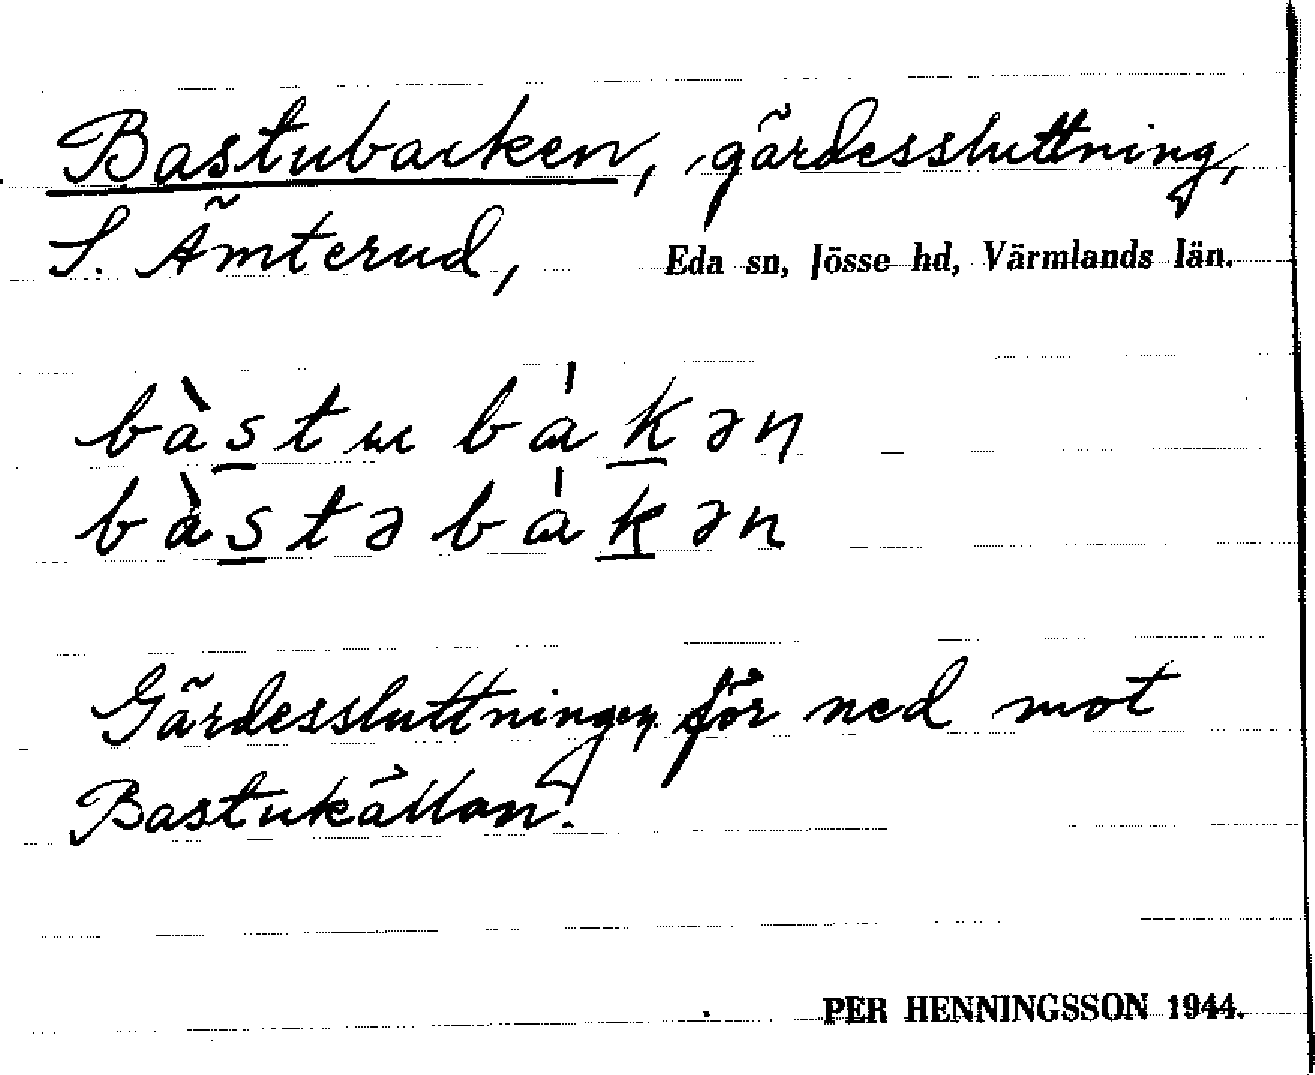 Bastubacken, gärdessluttning,
S. Ämterud, Eda sn, Jösse hd, Värmlands län.
bàstu bákən
bàstə bákən
Gärdessluttningen för ned mot
Bastukällan.
PER HENNINGSSON 1944.